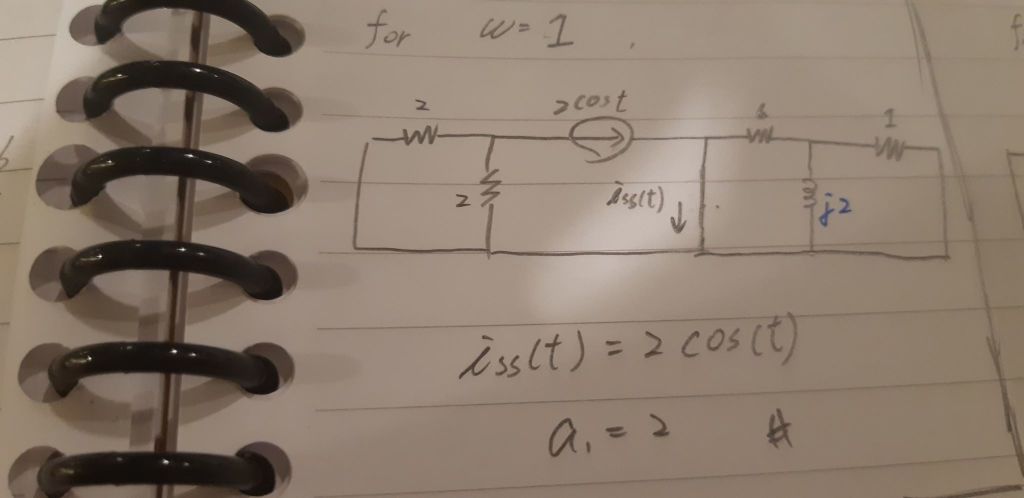 for w=1.
2 2cost 1 1
2 iss(t) j2
iss(t) = 2 cos(t)
a₁ = 2 #